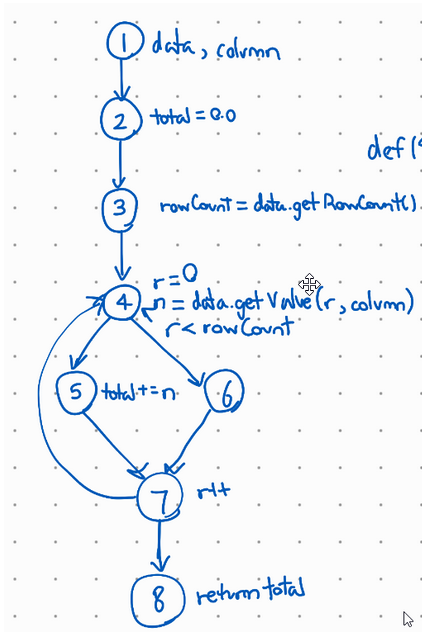 1 data, column
2 total = 0.0
def(
3 rowCount = data.getRowCount()
r = 0
4 n = data.getValue(r, column)
r < rowCount
5 total += n 6
7 r++
8 return total